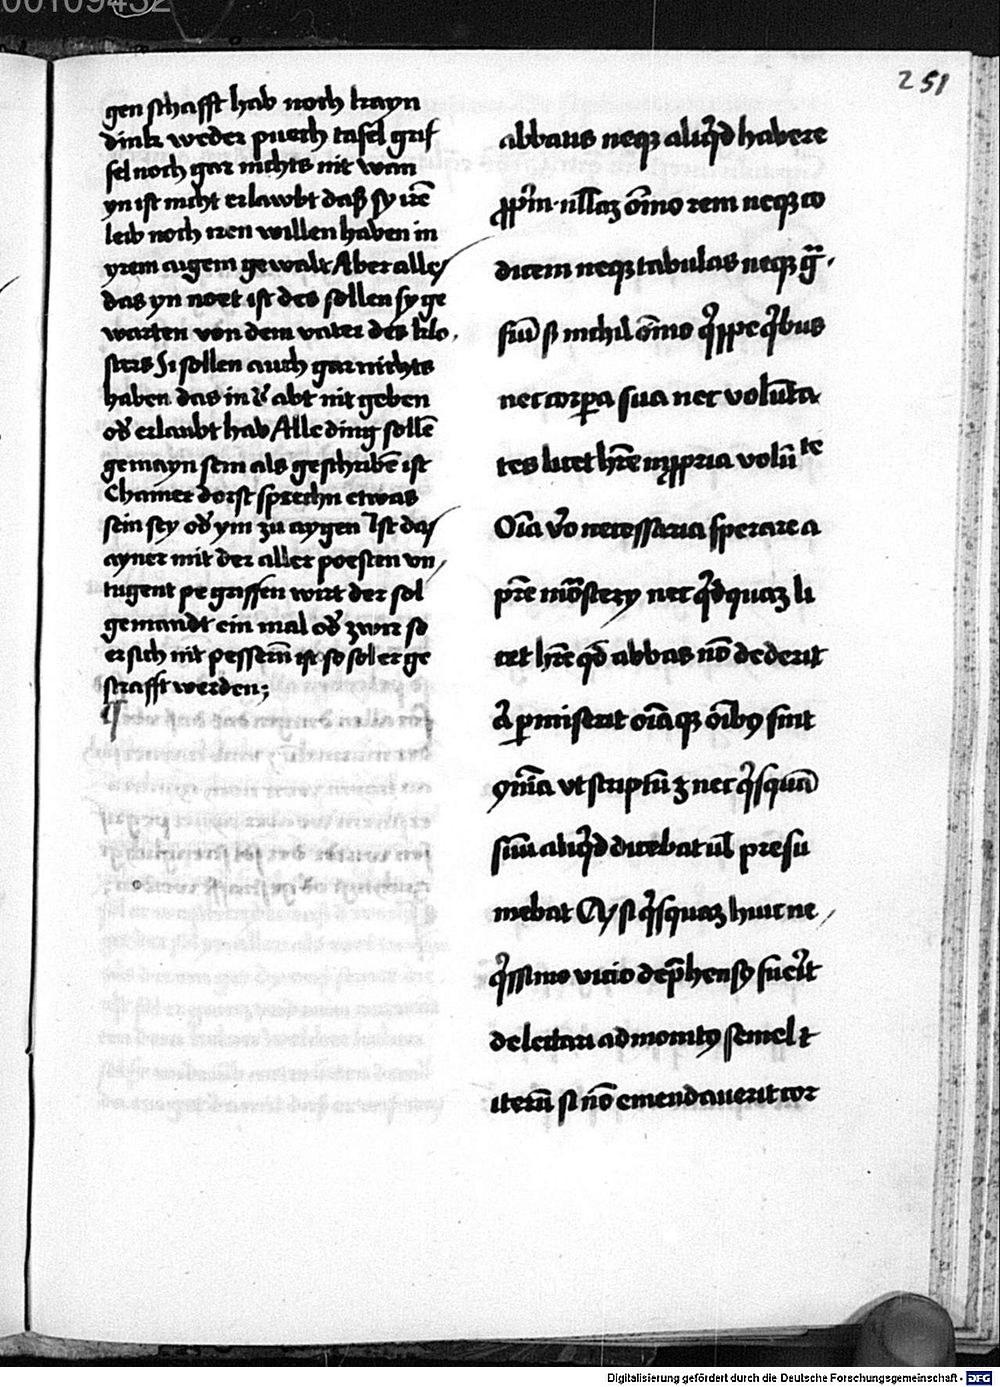 00109432
251
gen schafft hab noch kayn
dinkz weder puech tafel grif
fel noch gar nichts nit wan
yn ist nicht erlawbt daß sy irē
leib noch iren willen haben in
yrem aigem gewalt Aber alles
das yn noet ist des sollen sy ge
warten von dem vater des klo
sters Si sollen auch gar nichts
haben das in d̕ abt nit geben
od̕ erlaubt hab Alle ding sollē
gemayn sein als geschribē ist
Chainer dorst sprechn etwas
sein sey od̕ ym zu aygen Ist das
ayner mit der aller poesten vn
tugent pe griffen wirt der sol
gemandt ein mal od̕ zwir so
er sich nit pessern̄ ist so sol er ge
strafft werden;
abbatis neqꝫ aliq̇d habere
ꝓpriū nullaꝫ oīno rem neqꝫ co
dicem neqꝫ tabulas neqꝫ gͣ
fiū sꝫ nichil oīno q̇ppe q̇bus
nec corꝑa sua nec volūta
tes licet hr̄e in ꝓpria volūte
Oīa v̊o necessaria sperare a
pr̄e mōstery nec q̇dquaꝫ li
ceat hr̄e qđ abbas nō dederit
aut ꝑmiserit oīaqꝫ oībꝰ sint
ꝯmūia vt scriptū ꝫ nec q̇squā
suū aliq̇d dicebat ul̄ presu
mebat Qꝫ si q̇squaꝫ huic ne
q̇ssimo vicio dep̄hensꝰ fuerit
delectari admonitꝰ semel ⁊
iterū si nō emendauerit cor
Digitalisierung gefördert durch die Deutsche Forschungsgemeinschaft - DFG